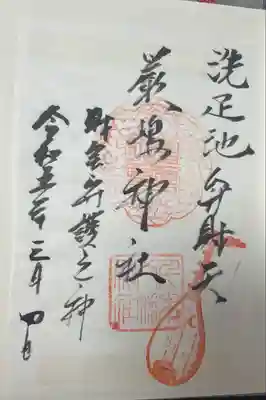 洗足池 弁財天
厳嶋神社
財宝守護之神
令和五年三月四日